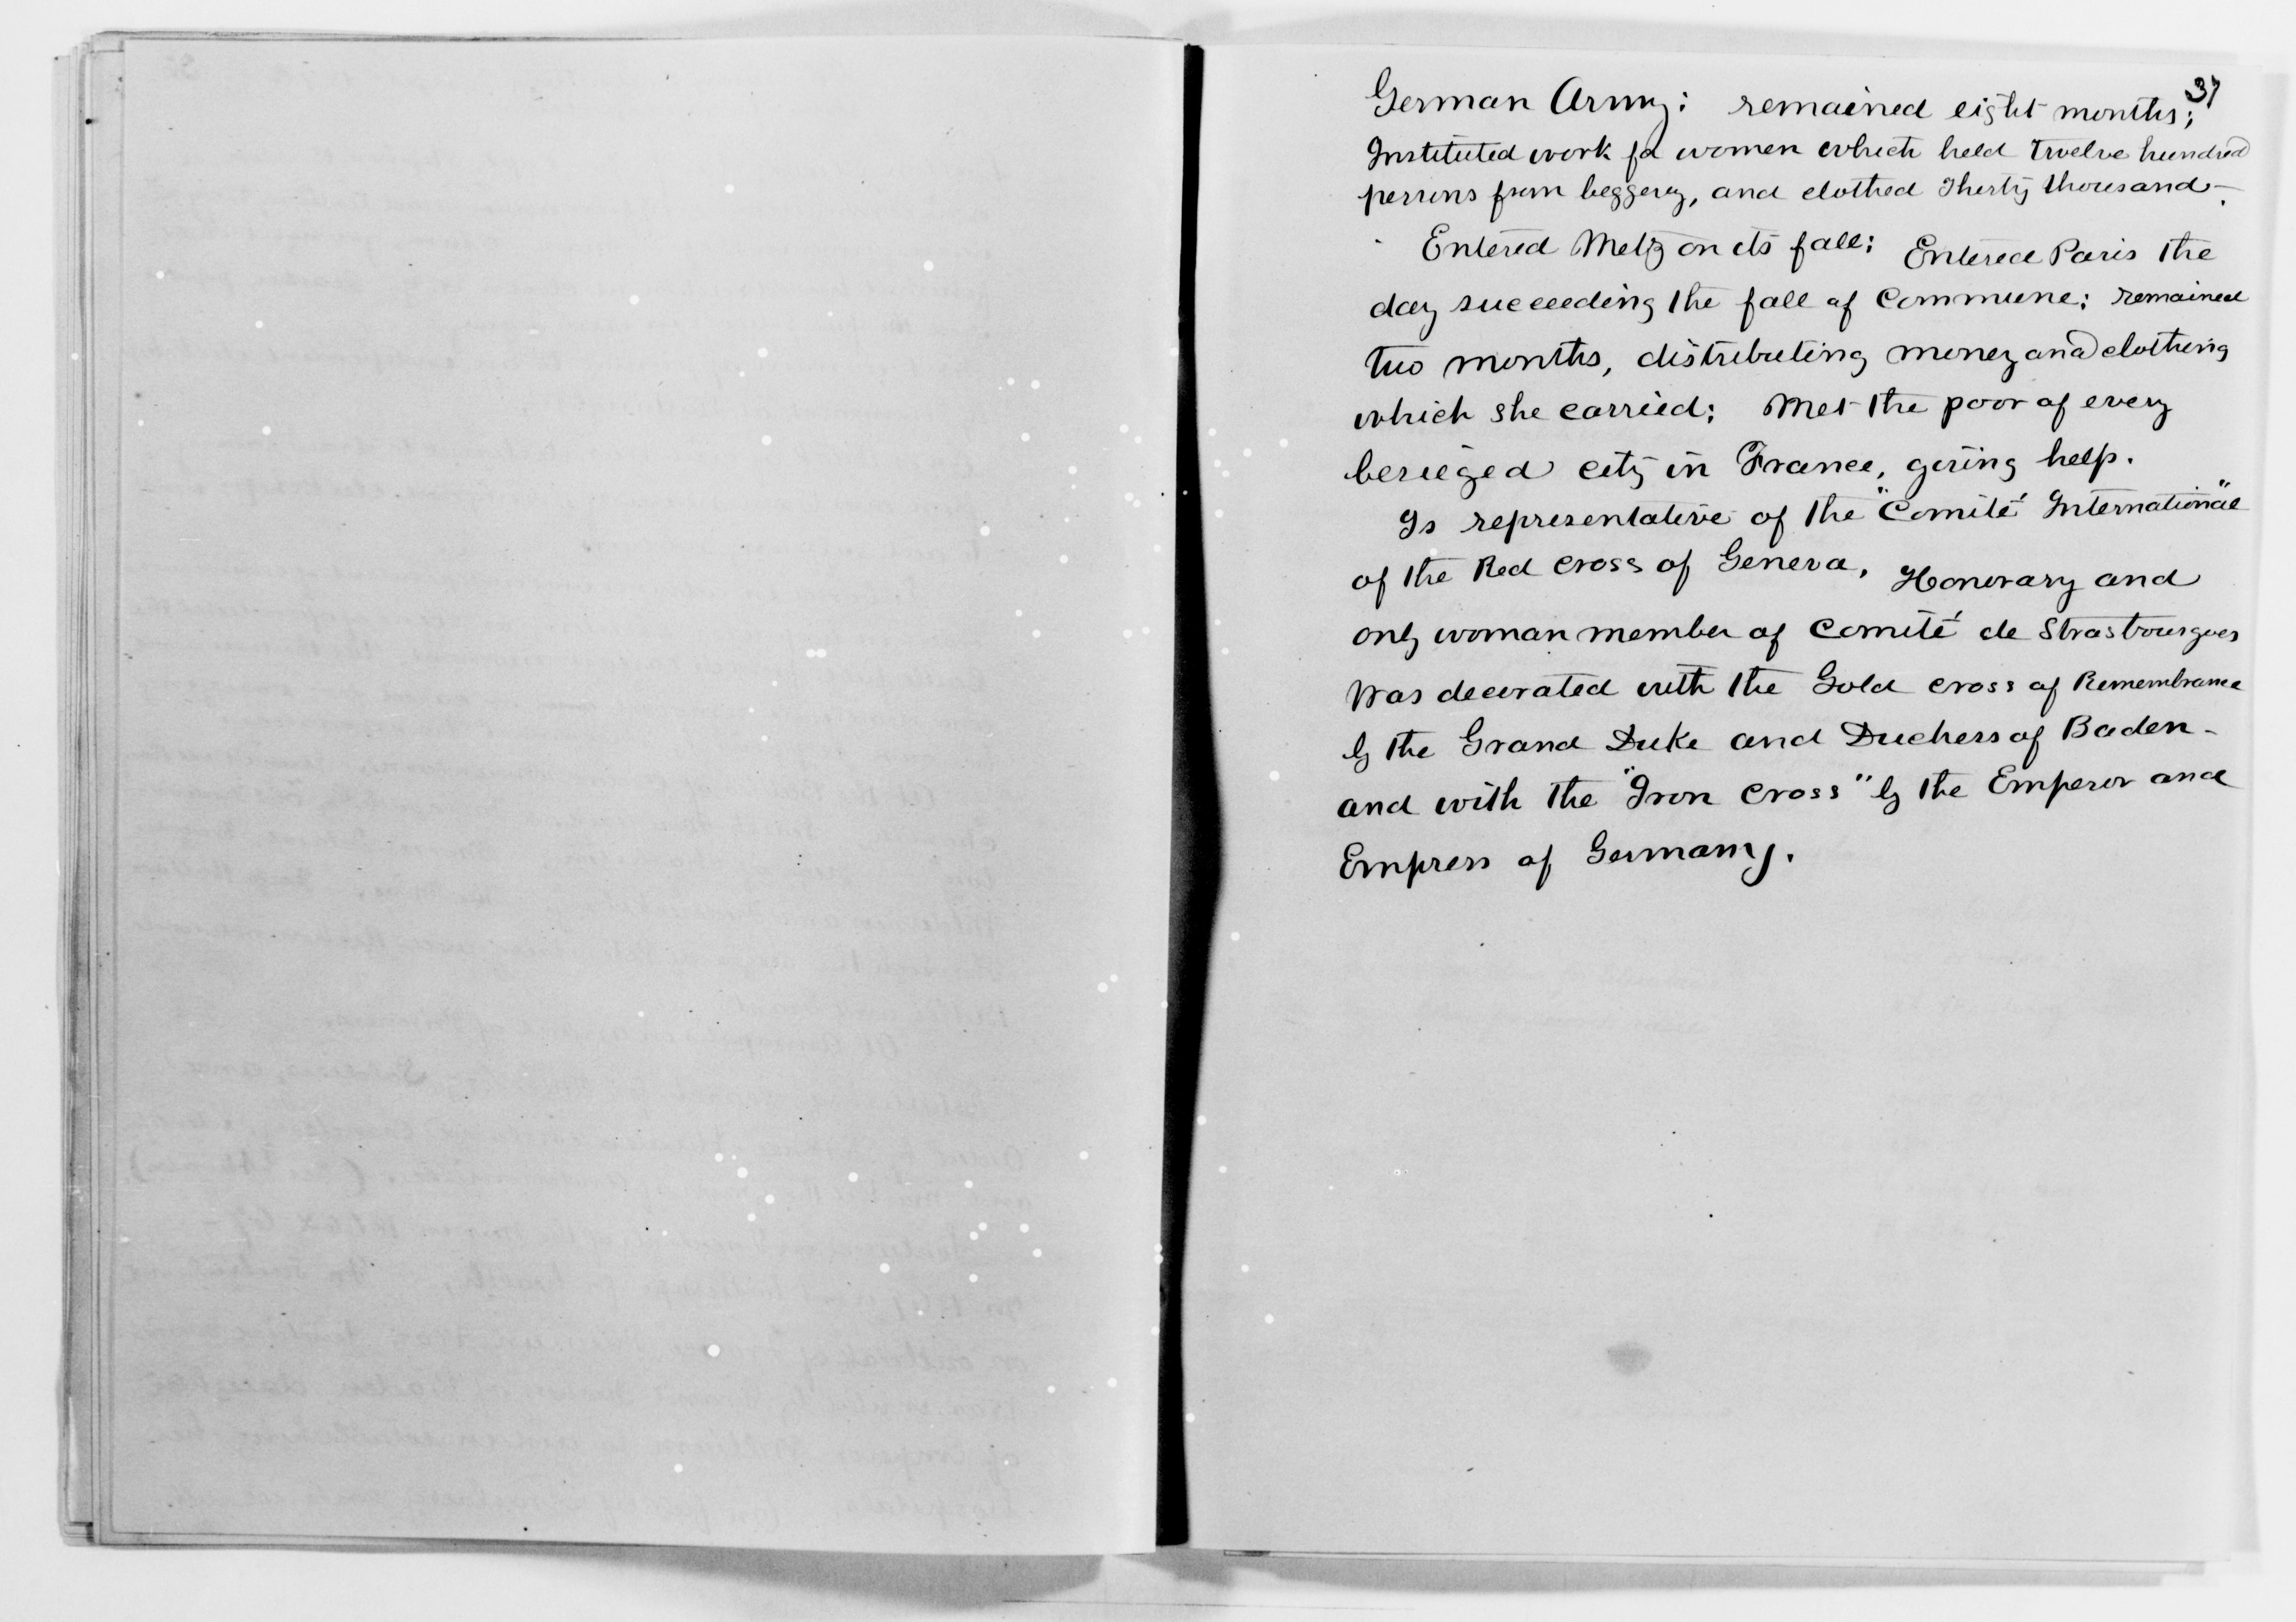 37
German Army: remained eight months;
Instituted work for women which held twelve hundred
persons from beggery, and clothed thirty thousand—.
Entered Metz on its fall: Entered Paris the
day succeeding the fall of Commune: remained
two months, distributing money and clothing
which she carried: Met the poor of every
besieged city in France, giving help.
Is representative of the "Comité International"
of the Red Cross of Geneva, Honorary and
only woman member of Comité de Strasbourgoes
Was decorated with the Gold Cross of Remembrance
by the Grand Duke and Duchess of Baden-
and with the "Iron Cross" by the Emperor and
Empress of Germany.